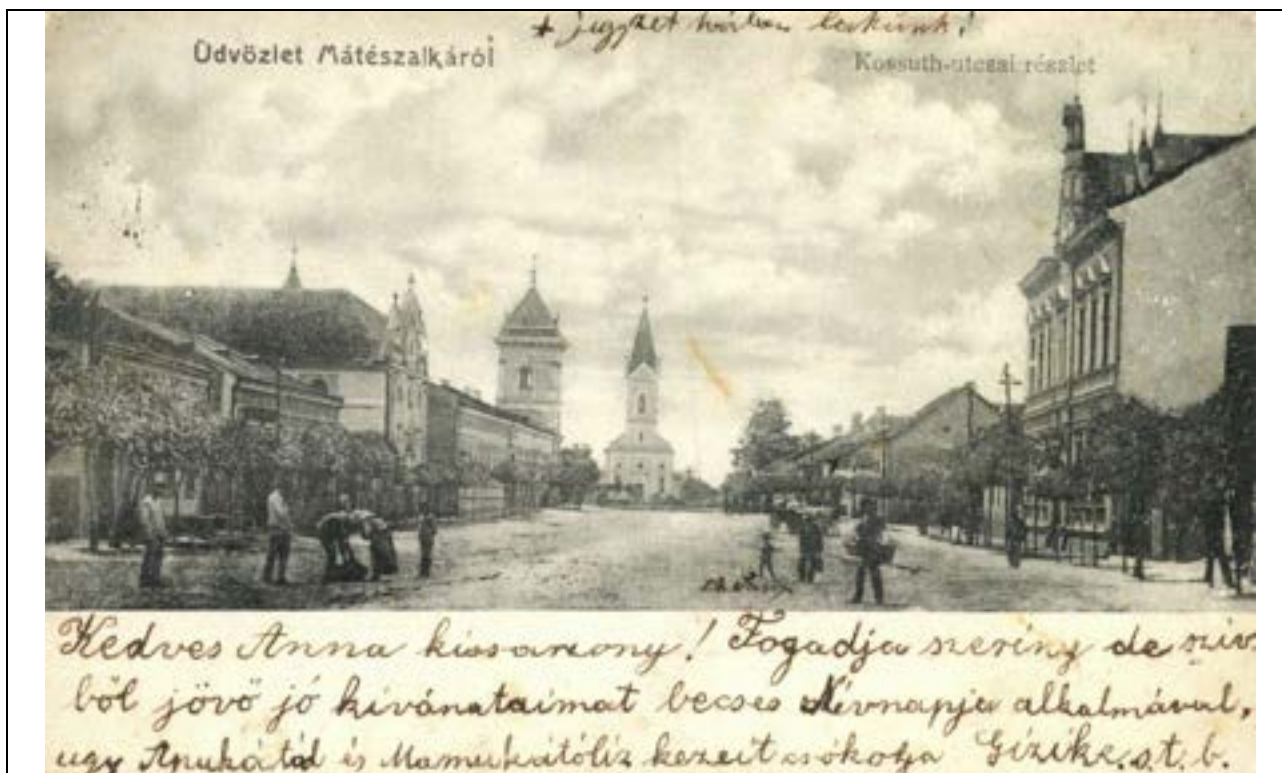 + jegyzet házban lakunk!
Üdvözlet Mátészalkáról
Kossuth-utcai részlet
Kedves Anna kisasszony! Fogadja szeriny de sziv
ből jövő jó kivánataimat becses Névnapja alkalmával,
ugy Apukától és Mamukától kezeit csókolja Gizike. s. t. b.